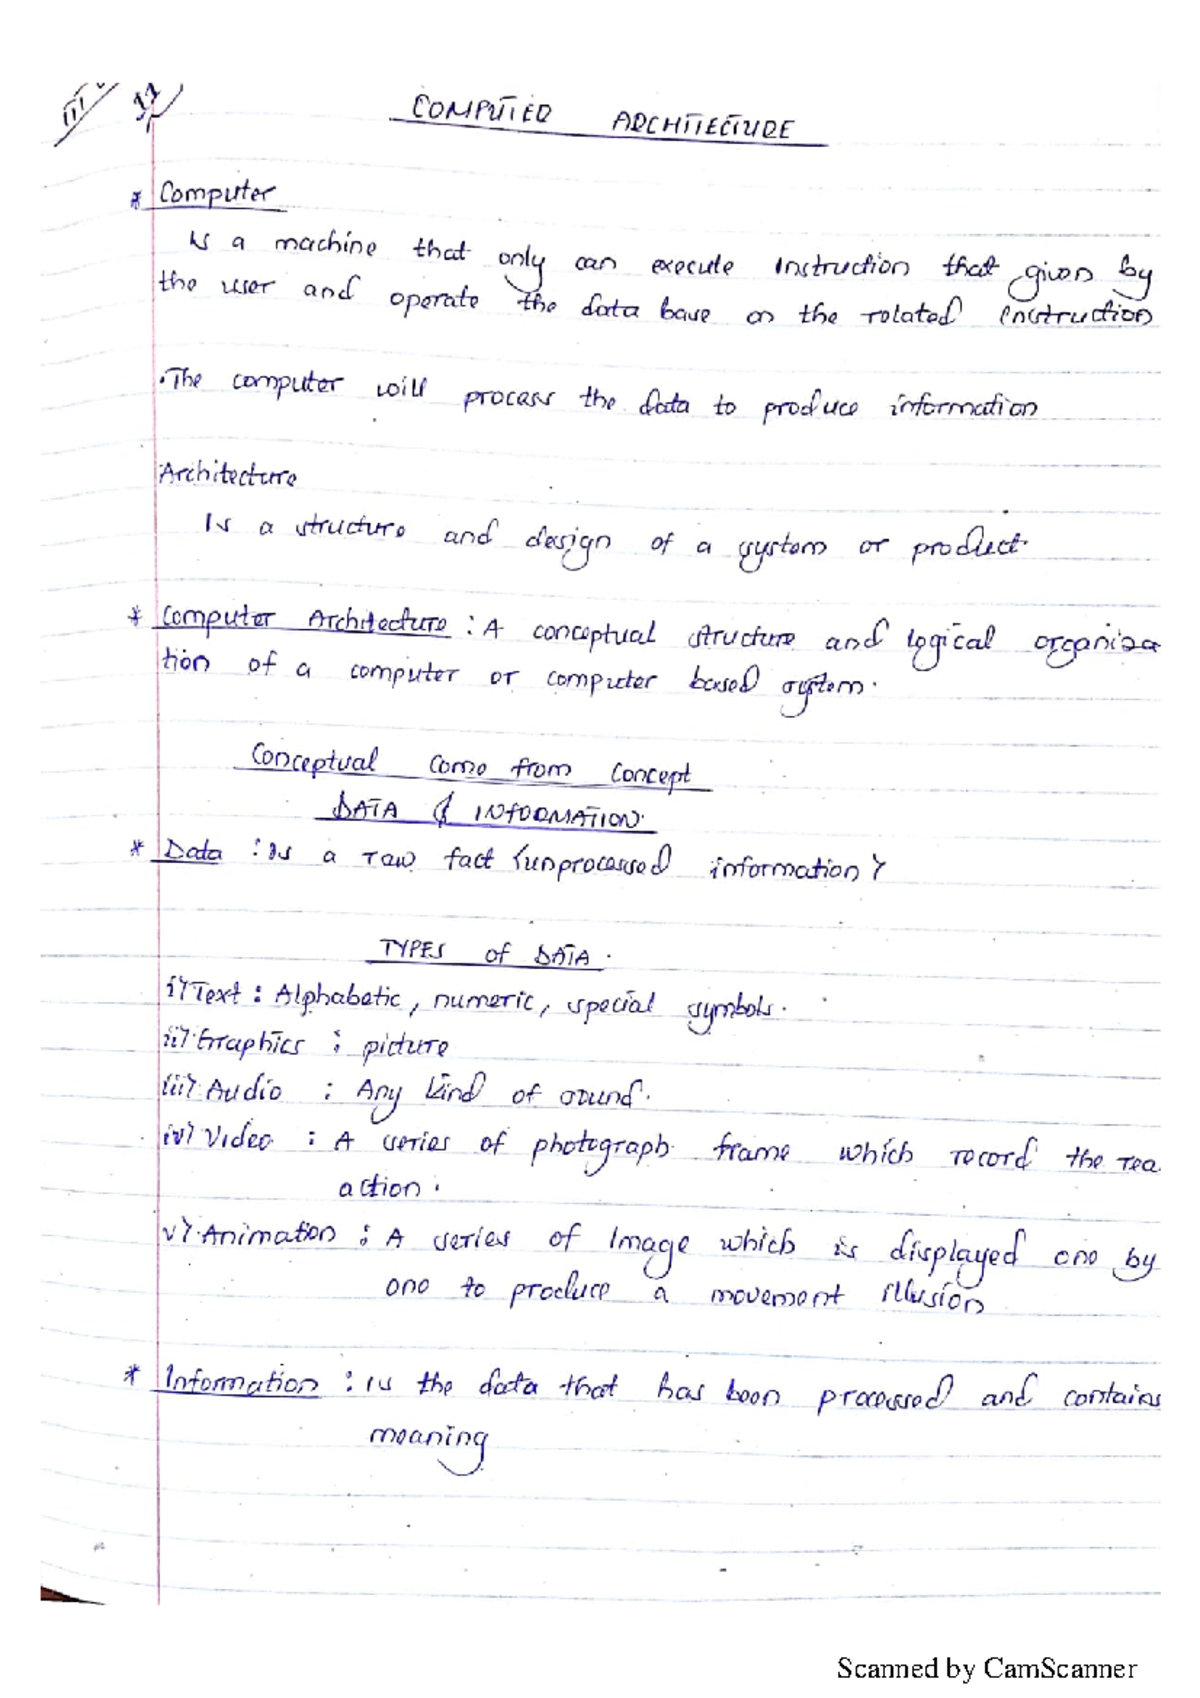 COMPUTER ARCHITECTURE
* Computer
Is a machine that only can execute Instruction that given by
the user and operate the data base on the related instruction
.The computer will process the data to produce information
Architecture
Is a structure and design of a system or product.
* Computer Architecture : A conceptual structure and logical organiza
tion of a computer or computer based system.
Conceptual come from concept
DATA & INFORMATION.
* Data : Is a raw fact (unprocessed information)
TYPES of DATA.
i) Text : Alphabetic, numeric, special symbols.
ii) Graphics : picture
iii) Audio : Any kind of sound.
iv) Video : A series of photograph frame which record the rea
action.
v) Animation : A series of Image which is displayed one by
one to produce a movement illusion
* Information : is the data that has been processed and contains
meaning
Scanned by CamScanner